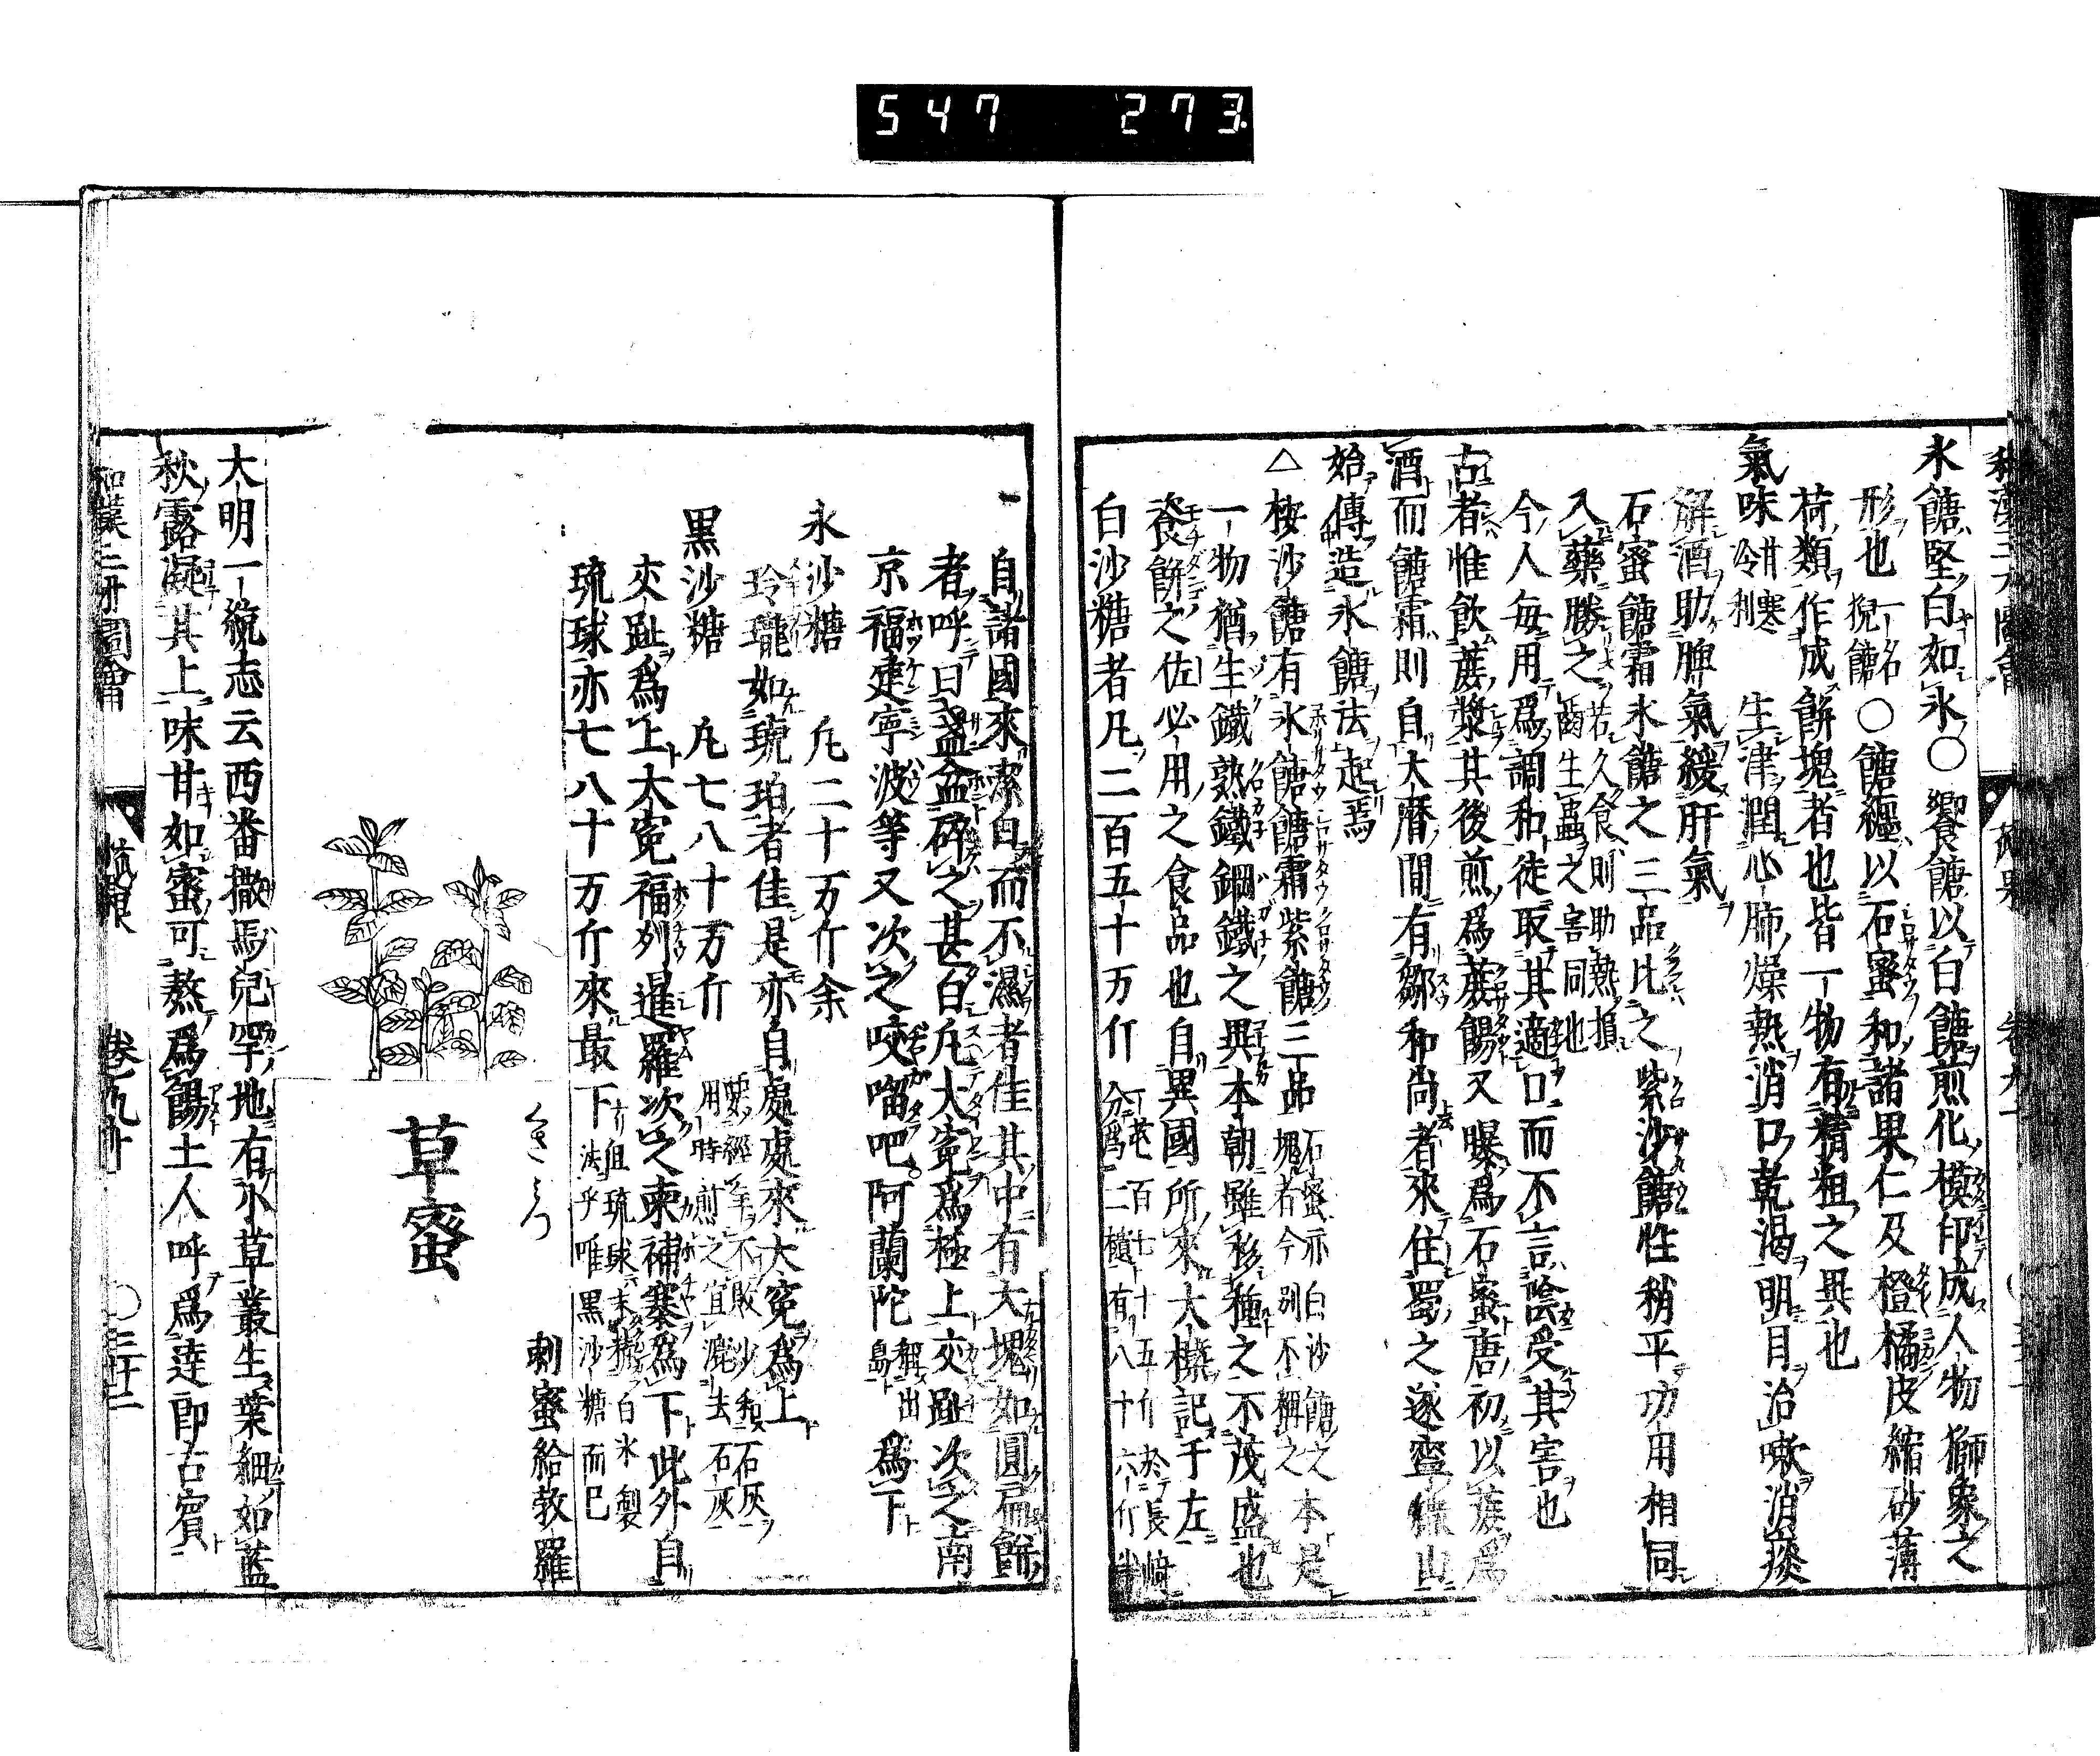 547 273
氷餹堅白如氷〇饗餹以白餹煎化模印成人物獅象之
形也一名猊餹〇餹纏以石蜜和諸果仁及橙橘皮縮砂薄
荷類作成餅塊者也皆一物有精粗之異也
氣味甘寒冷利 生津潤心肺燥熱消口乾渴明目治嗽消痰
解酒助脾氣緩肝氣
石蜜餹霜氷餹之三品比之紫沙餹性稍平功用相同
入藥勝之若久食則助熱損齒生䘌之害同也
今人每用爲調和徒取其適口而不言陰受其害也
古者惟飲蔗漿其後煎爲蔗餳又曝爲石蜜唐初以蔗爲
酒而餹霜則自大曆間有鄒和尚者來住蜀之遂寧繖山
始傳造氷餹法起焉
△按沙餹有氷餹餹霜紫餹三品石蜜亦白沙餹之本是塊者今別不稱之
一物猶生鐵熟鐵鋼鐵之異本朝雖移種之不茂盛也
餈餅之佐必用之食品也自異國所來大槩記于左
白沙糖者凡二百五十万斤
自諸國來潔白而不濕者佳其中有大塊如圓扁餅
者呼曰盞盆碎之甚白凢大寃爲極上交趾次之南
京福建寧波等又次之咬𠺕吧阿蘭陀
氷沙糖 凢二十万斤余
玲瓏如琥珀者佳是亦自處處來大寃爲上
黒沙糖 凢七八十万斤
交趾爲上大寃福州暹羅次之柬補寨爲下此外自
琉球亦七八十万斤來最下
くさみつ
草蜜
刺蜜 給敦羅
大明一統志云西番撒馬兒罕地有小草叢生葉細如藍
秋露凝其上味甘如蜜可熬爲餳土人呼爲達即古賓